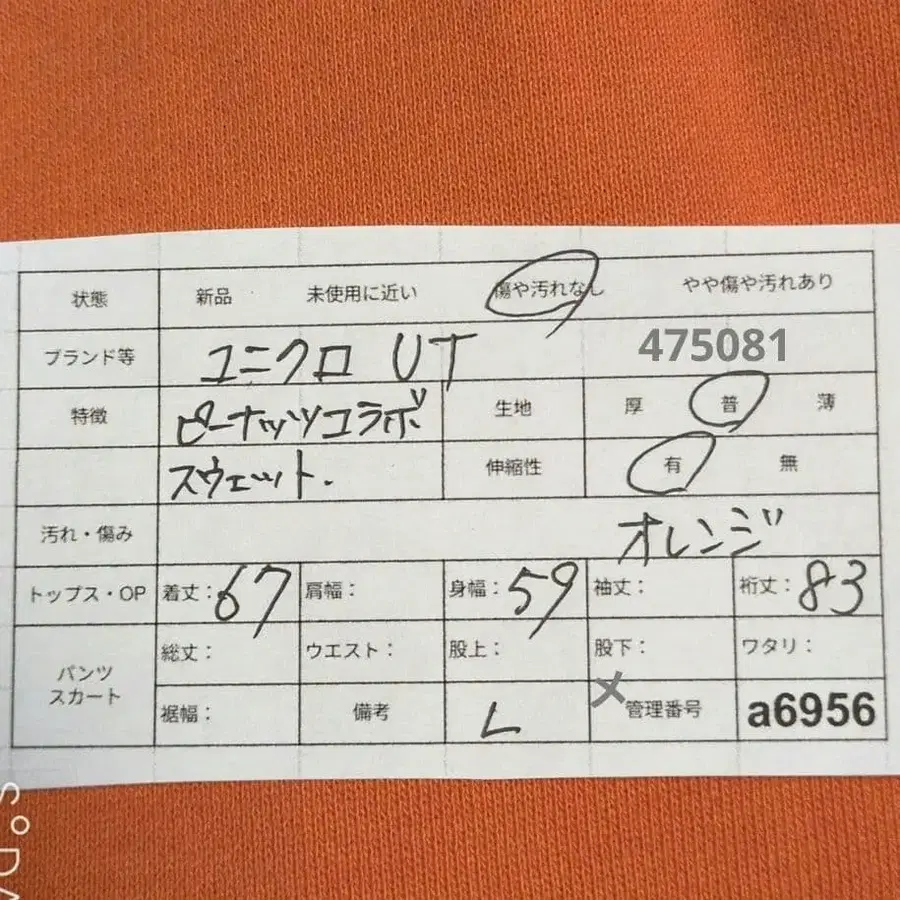 状態 新品 未使用に近い 傷や汚れなし やや傷や汚れあり
ブランド等 ユニクロ UT 475081
特徴 ピーナッツコラボ 生地 厚 普 薄
スウェット. 伸縮性 有 無
汚れ・傷み オレンジ
トップス・OP 着丈:67 肩幅: 身幅:59 袖丈: 裄丈:83
パンツ
スカート
総丈: ウエスト: 股上: 股下: ワタリ:
裾幅: 備考 L 管理番号 a6956